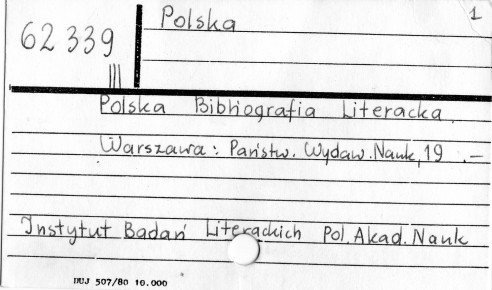 Polska
1
62 339
III
Polska Bibliografia Literacka.
Warszawa: Państw. Wydaw. Nauk, 19 .—
Instytut Badań Literackich Pol. Akad. Nauk
DUJ 507/80 10.000